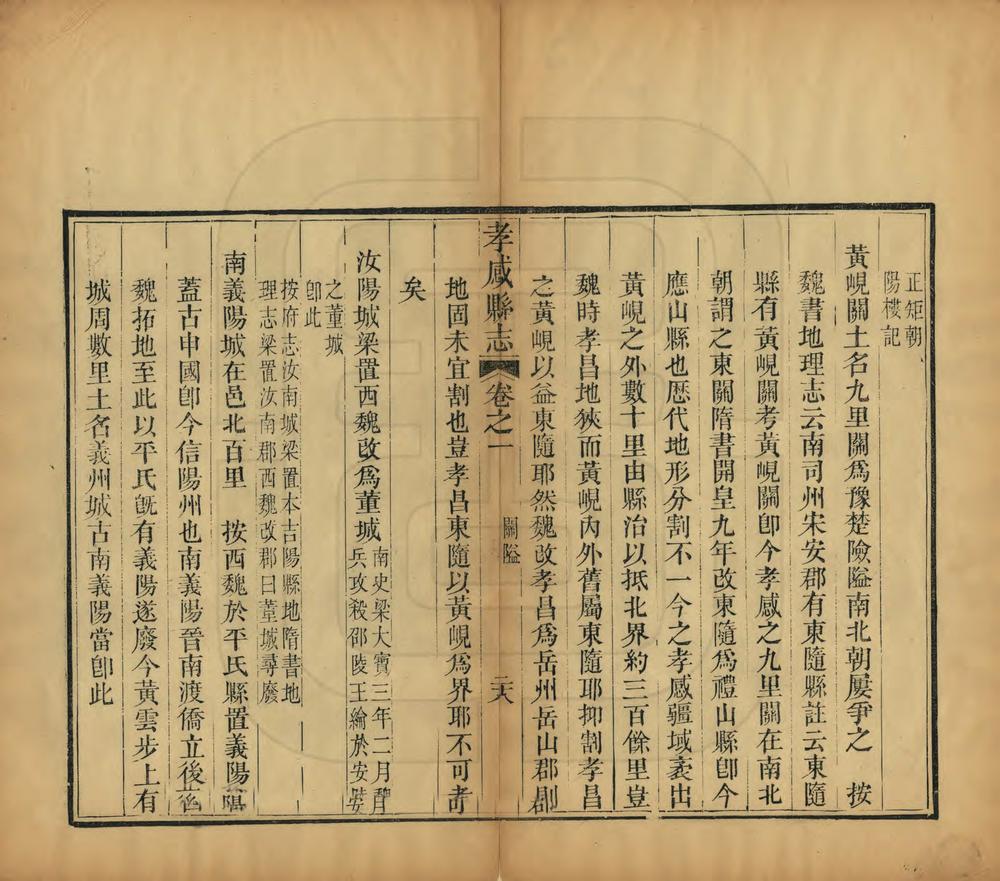 正矩朝
陽樓記
黃峴關土名九里關爲豫楚險隘南北朝屢爭之　按
魏書地理志云南司州宋安郡有東隨縣註云東隨
縣有黃峴關考黃峴關卽今孝感之九里關在南北
朝謂之東關隋書開皇九年改東隨爲禮山縣卽今
應山縣也歷代地形分割不一今之孝感疆域袤出
黃峴之外數十里由縣治以抵北界約三百餘里豈
魏時孝昌地狹而黃峴內外舊屬東隨耶抑割孝昌
之黃峴以益東隨耶然魏改孝昌爲岳州岳山郡郡
地固未宜割也豈孝昌東隨以黃峴爲界耶不可考
矣
孝感縣志
卷之一
關隘
二六
汝陽城梁置西魏改爲董城
南史梁大寶三年二月魏
兵攻殺邵陵王綸於安陸
之董城
卽此
按府志汝南城梁置本吉陽縣地隋書地
理志梁置汝南郡西魏改郡曰董城尋廢
南義陽城在邑北百里　按西魏於平氏縣置義陽
蓋古申國卽今信陽州也南義陽晉南渡僑立後
魏拓地至此以平氏旣有義陽遂廢今黃雲步上有
城周數里土名義州城古南義陽當卽此